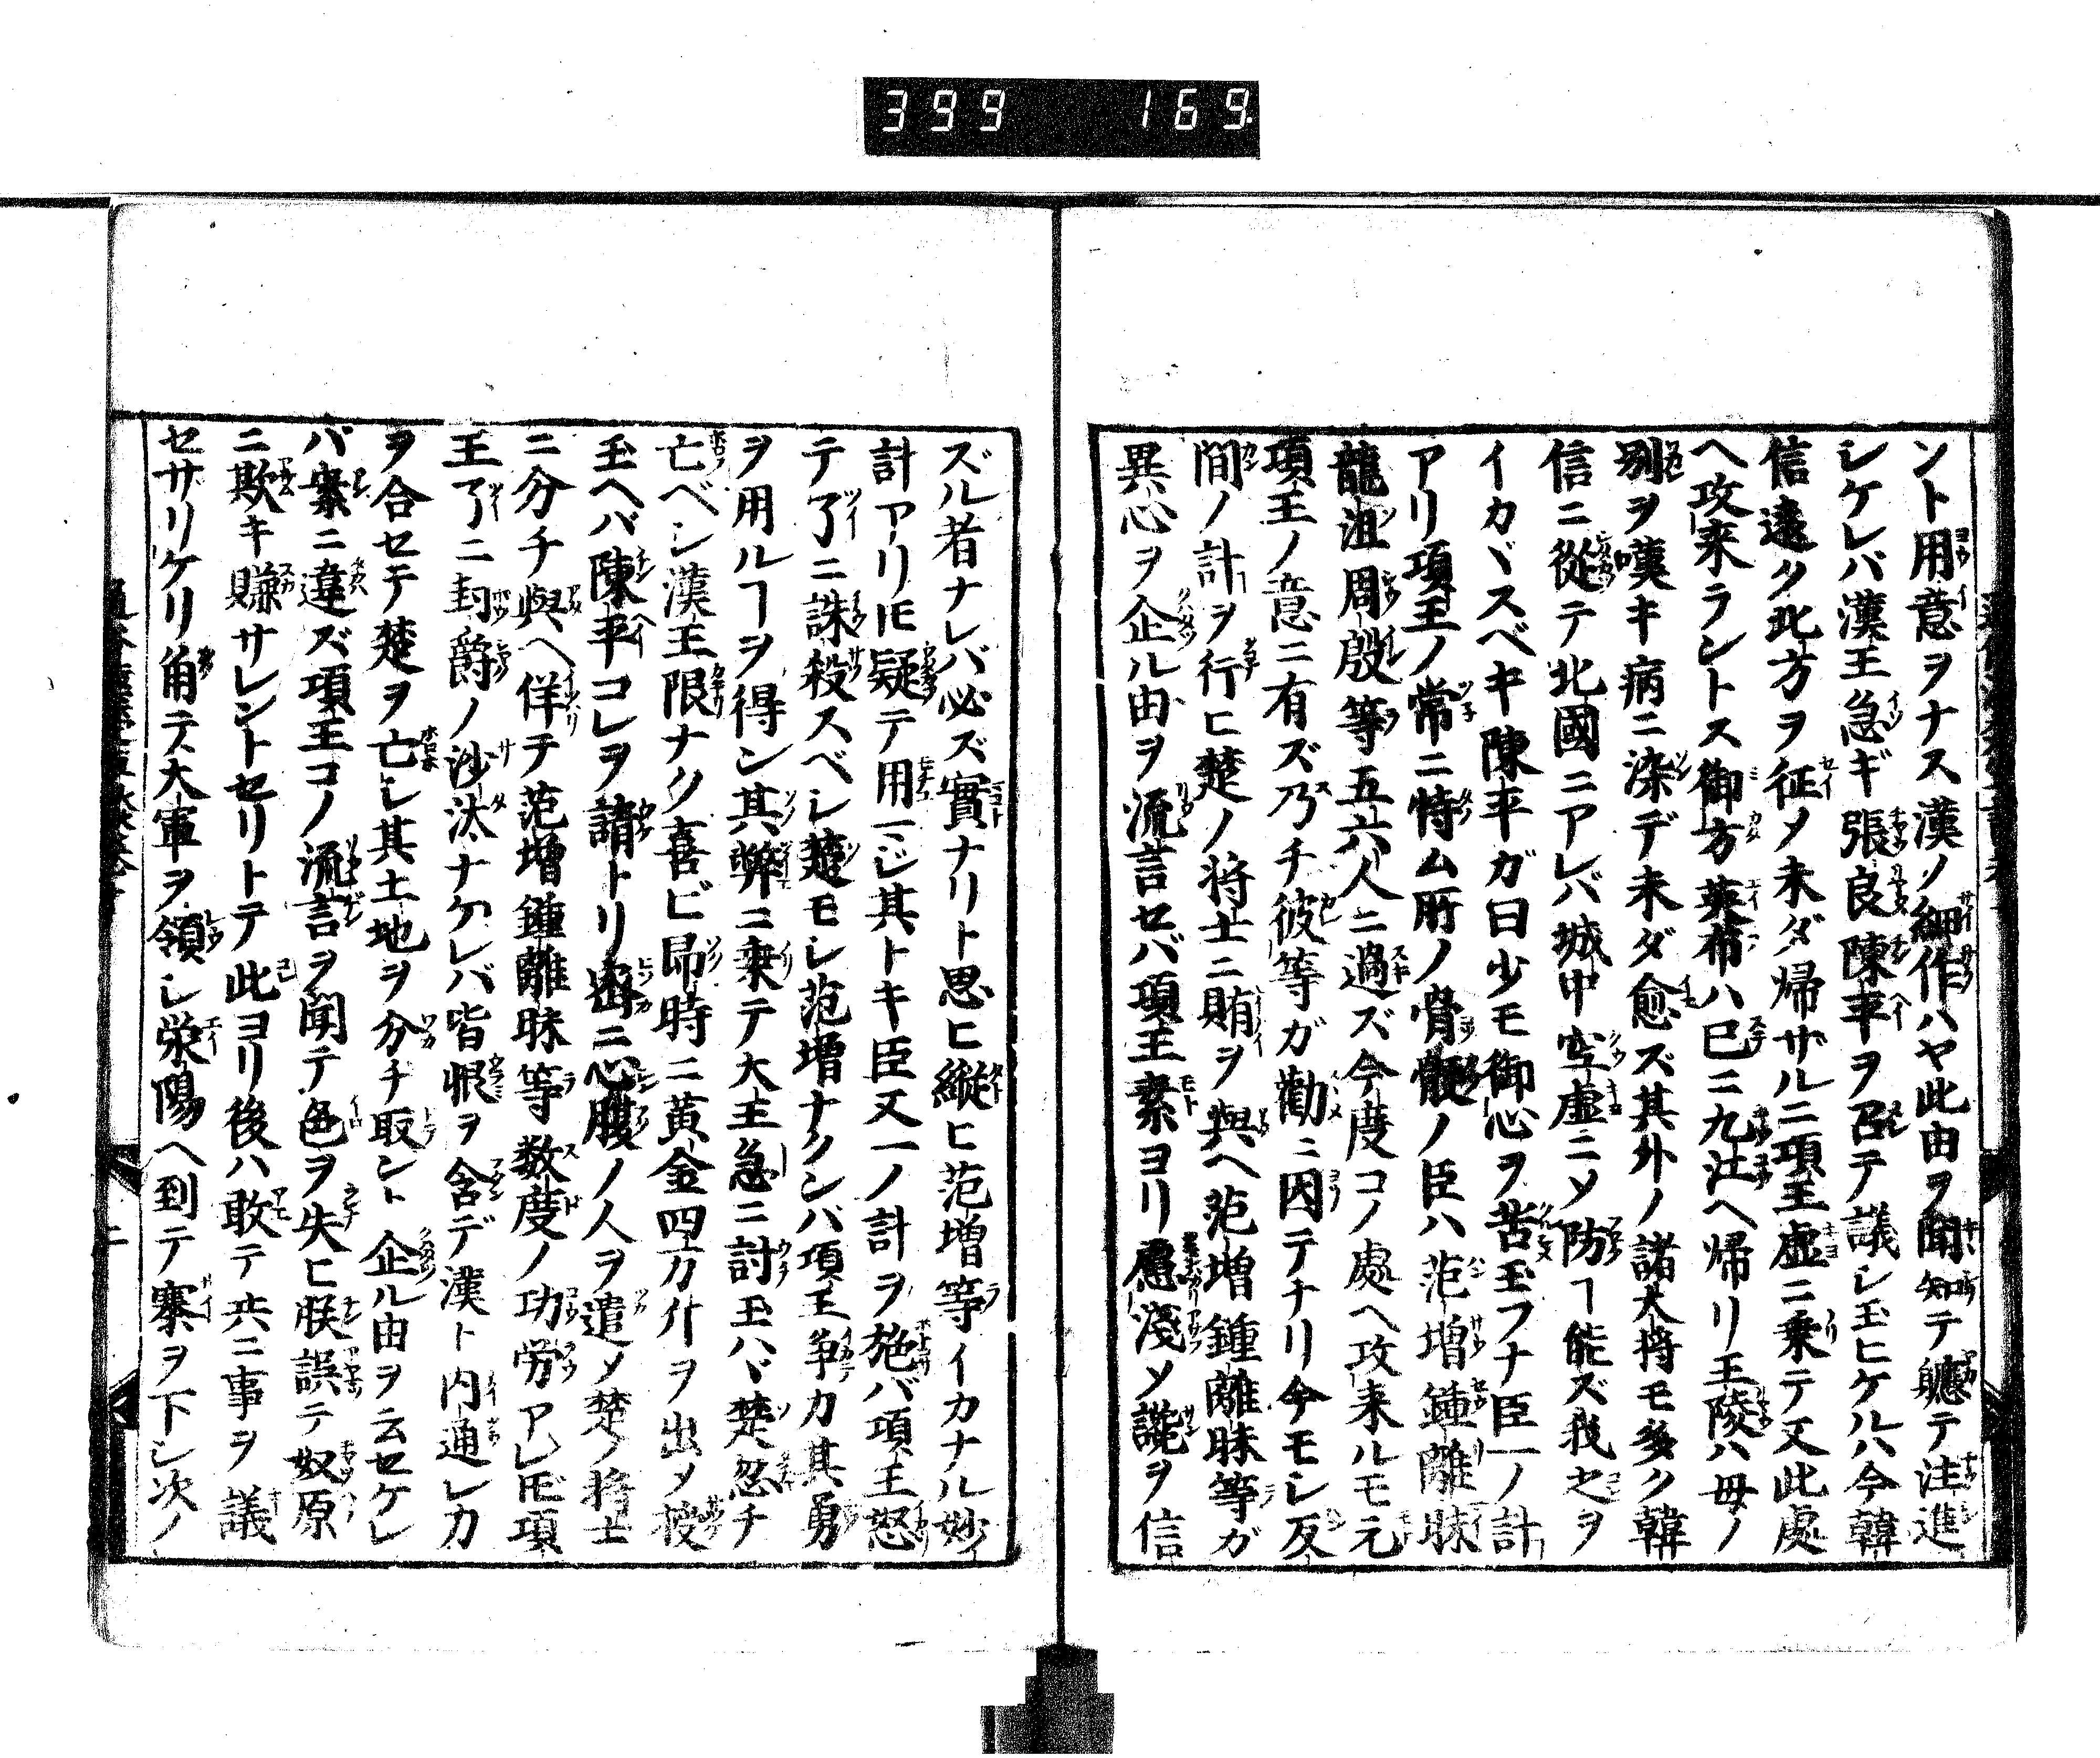 399 169
ント用意ヲナス漢ノ細作ハヤ此由ヲ聞知テ軈テ注進
シケレバ漢王急ギ張良陳平ヲ召テ議シ玉ヒケルハ今韓
信遠ク北方ヲ征メ未ダ帰ザルニ項王虚ニ乗テ又此處
ヘ攻来ラントス御方英布ハ已ニ九江ヘ帰リ王陵ハ母ノ
別ヲ嘆キ病ニ染デ未ダ愈ズ其外ノ諸大将モ多ク韓
信ニ從テ北國ニアレバ城中空虚ニメ防ヿ能ズ我之ヲ
イカヾスベキ陳平ガ曰少モ御心ヲ苦玉フナ臣一ノ計
アリ項王ノ常ニ恃ム所ノ骨骾ノ臣ハ范増鍾離昧
龍沮周殷等五六人ニ過ズ今度コノ處ヘ攻来ルモ元
項王ノ意ニ有ズ乃チ彼等ガ勸ニ因テナリ今モシ反
間ノ計ヲ行ヒ楚ノ将士ニ賄ヲ與ヘ范増鍾離昧等ガ
異心ヲ企ル由ヲ流言セバ項王素ヨリ慮淺メ讒ヲ信
ズル者ナレバ必ズ實ナリト思ヒ縦ヒ范増等イカナル妙
計アリ𪜈疑テ用ヒジ其トキ臣又一ノ計ヲ施バ項王怒
テ了ニ誅殺スベシ楚モシ范増ナクンバ項王争カ其勇
ヲ用ルヿヲ得ン其弊ニ乗テ大王急ニ討玉ハヾ楚忽チ
亡ベシ漢王限ナク喜ビ即時ニ黄金四万斤ヲ出メ授
玉ヘバ陳平コレヲ請トリ密ニ心腹ノ人ヲ遣メ楚ノ将士
ニ分チ與ヘ佯テ范増鍾離昧等数度ノ功労アレ𪜈項
王了ニ封爵ノ沙汰ナケレバ皆恨ヲ含デ漢ト内通シカ
ヲ合セテ楚ヲ亡シ其土地ヲ分チ取ント企ル由ヲ云セケレ
バ案ニ違ズ項王コノ流言ヲ聞テ色ヲ失ヒ朕誤テ奴原
ニ欺キ賺サレントセリトテ此ヨリ後ハ敢テ共ニ事ヲ議
セサリケリ角テ大軍ヲ領シ栄陽ヘ到テ寨ヲ下シ次ノ
二